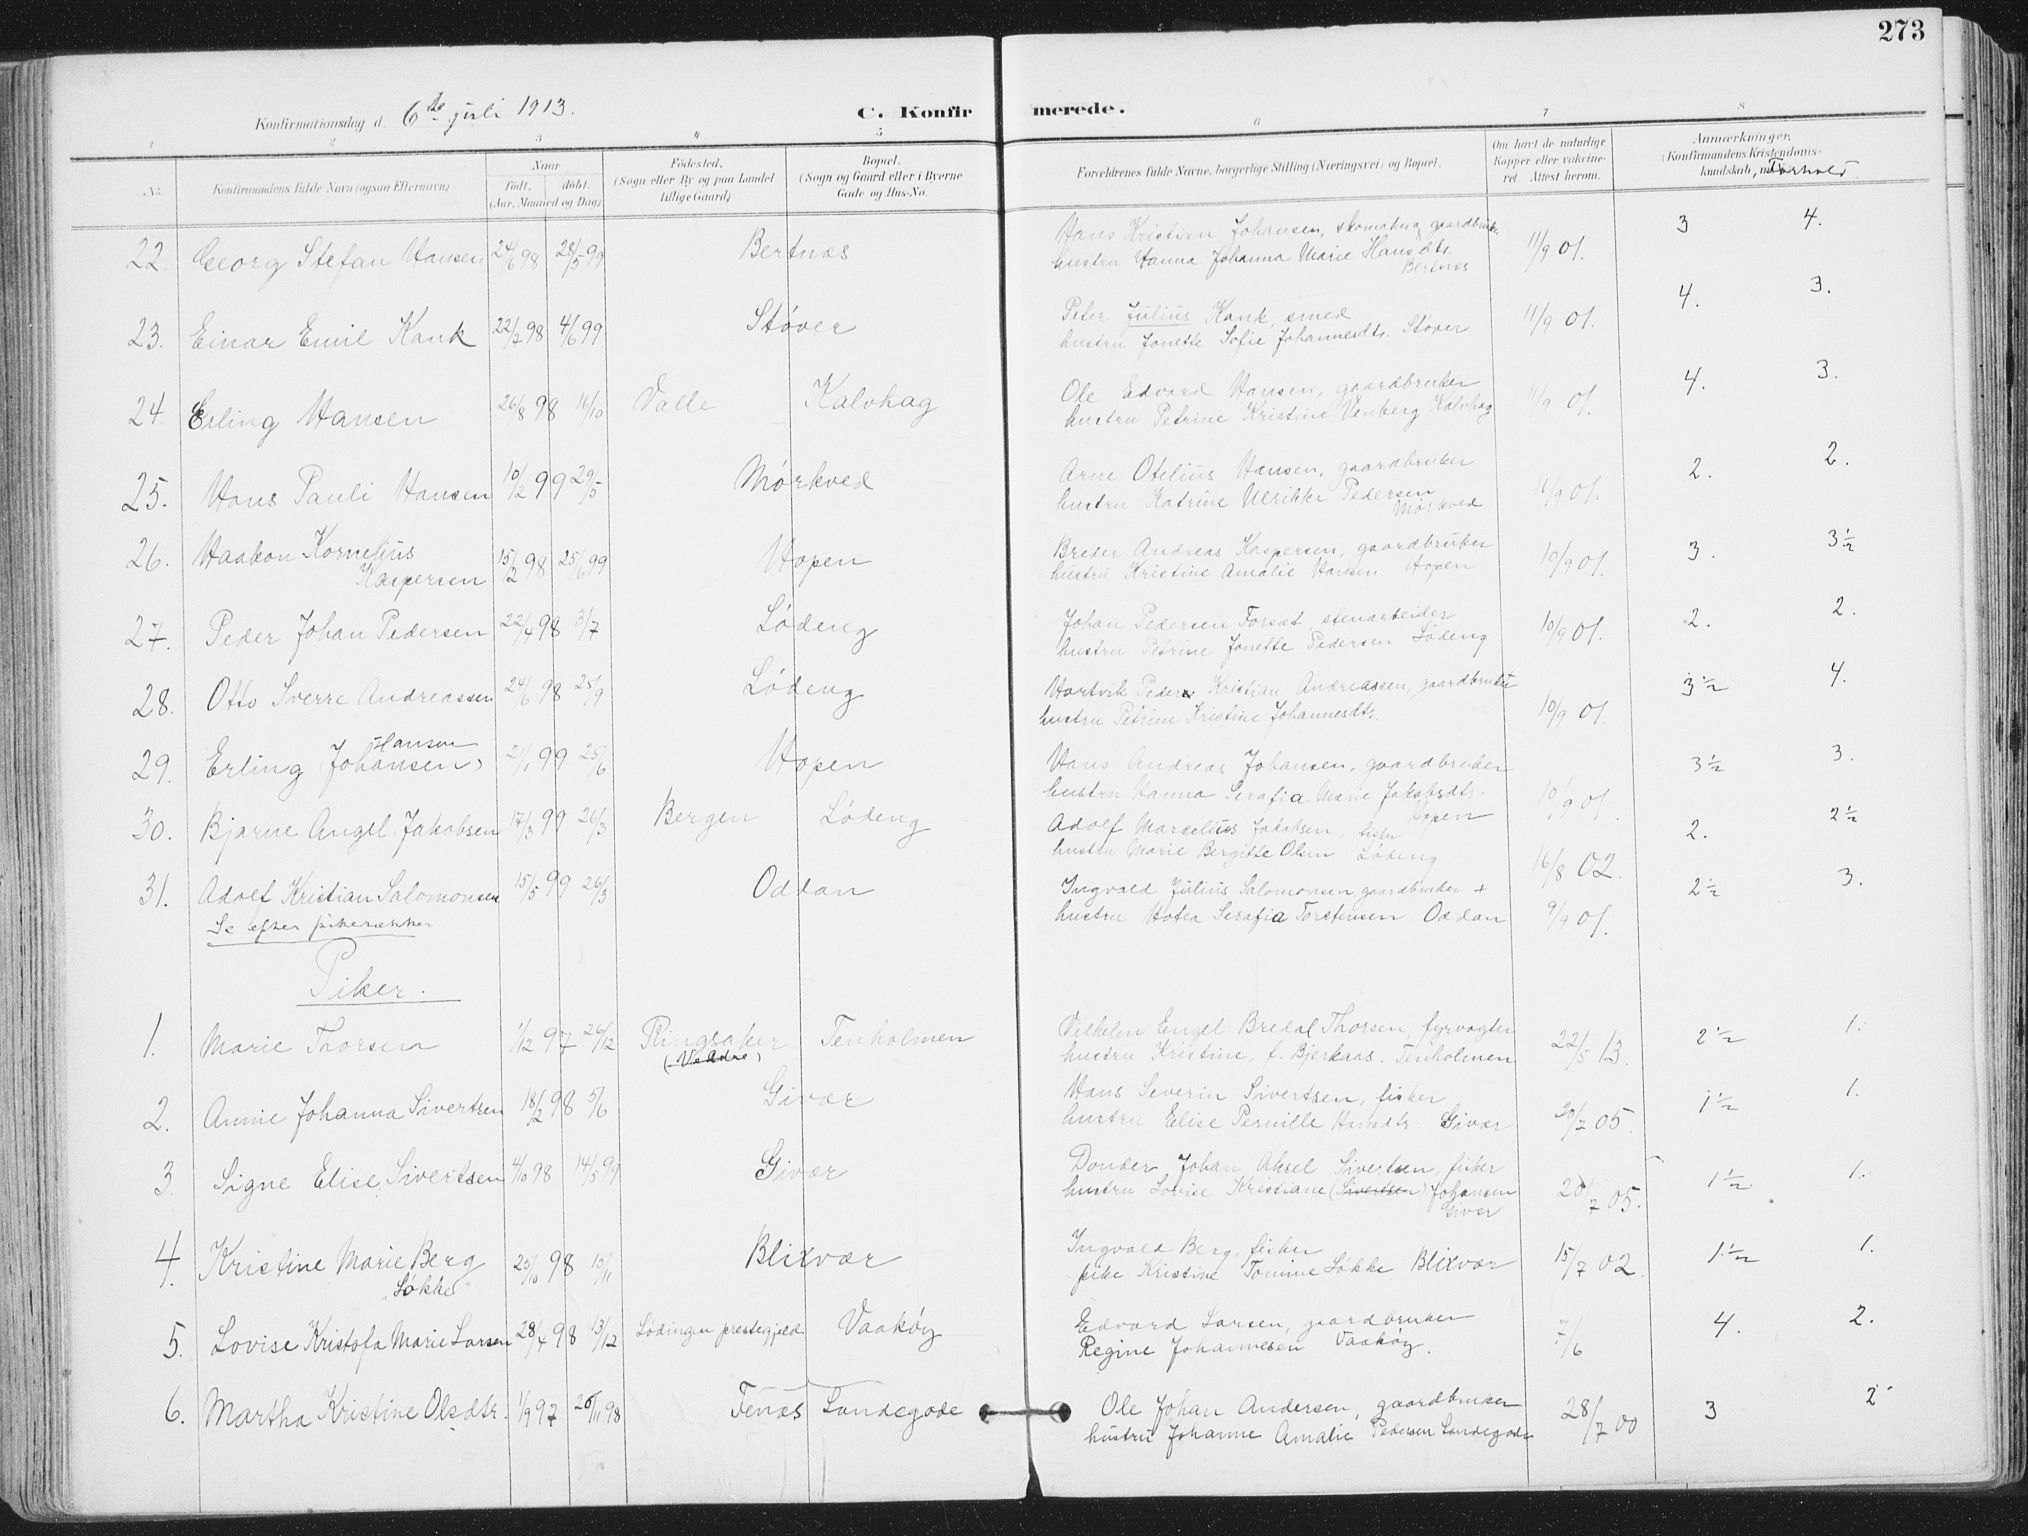 273
Konfirmationsdag d. 6te juli 1913. C. Konfirmerede.
1 2 3 4 5 6 7 8
No. Konfirmandens fulde Navn (ogsaa Efternavn) Naar født. døbt. (Aar, Maaned og Dag) Fødested. (Sogn eller By og paa Landet tillige Gaard) Bopæl. (Sogn og Gaard eller i Byerne Gade og Hus-No. Forældrenes fulde Navne, borgerlige Stilling (Næringsvei) og Bopæl. Om havt de naturlige Kopper eller vakcineret. Attest herom. Anmærkninger. (Konfirmandens Kristendomskundskab, Forhold
22. Georg Stefan Hansen 24/6 98 28/5 99 Bertnæs Hans Kristian Johansen, skomaker, gaardbruker 11/9 01. 3 4.
hustru Hanna Johanna Marie Hansdtr. Bertnæs
23. Einar Emil Kank 22/7 98 4/6 99 Støver Peter Julius Kank, smed 11/9 01. 4. 3.
hustru Jonette Sofie Johannesdtr. Støver
24. Erling Hansen 26/8 98 16/10 Valle Kalvhag Ole Edvard Hansen, gaardbruker 11/9 01. 4. 3.
hustru Petrine Kristine Venberg Kalvhag
25. Hans Pauli Hansen 10/2 99 29/5 Mørkved Arne Otelius Hansen, gaardbruker 11/9 01. 2. 2.
hustru Katrine Ulrikke Pedersen Mørkved
26. Haakon Kornelius Kaspersen 15/12 98 25/6 99 Hopen Breder Andreas Kaspersen, gaardbruker 10/9 01. 3. 3½
hustru Kristine Amalie Hansen Hopen
27. Peder Johan Pedersen 22/4 98 3/7 Løding Johan Pedersen Forsæt, stenarbeider 10/9 01. 2. 2.
hustru Petrine Jonette Pedersen Løding
28. Otto Sverre Andreassen 24/6 98 25/9 Løding Hartvik Peder Kristian Andreassen, gaardbruker 10/9 01. 3½ 4.
hustru Petrine Kristine Johannesdtr.
29. Erling (Johansen) Hansen 21/1 99 25/6 Hopen Hans Andreas Johansen, gaardbruker 10/9 01. 3½ 3.
hustru Hanna Serafia Marie Jakobsdtr. Hopen
30. Bjarne Angel Jakobsen 17/3 99 26/3 Bergen Løding Adolf Marselius Jakobsen, fisker 16/8 02. 2. 2½
hustru Marie Bergitte Olsen Løding
31. Adolf Kristian Salomonsen 15/5 99 26/3 Oddan Ingvald Julius Salomonsen gaardbruker + 9/9 01. 2½ 3.
hustru Hotea Serafia Torstensen Oddan
Se efter pikerækken
Piker.
1. Marie Thorsen 1/12 97 26/12 Ringsaker (Veldre) Tenholmen Vilhelm Engel Bredal Thorsen, fyrvogter 22/5 13. 2½ 1.
hustru Kristine, f. Bjerkaas. Tenholmen
2. Annie Johanna Sivertsen 18/2 98 5/6 Givær Hans Severin Sivertsen, fisker 20/7 05. 1½ 1.
hustru Elise Pernille Hansdtr. Givær
3. Signe Elise Sivertsen 4/10 98 14/5 99 Givær Donder Johan Aksel Sivertsen, fisker 20/7 05. 1½ 1.
hustru Lovise Kristiane (Sivertsen) Johansen Givær
4. Kristine Marie Berg "Løkke" 25/10 98 13/11 Blixvær Ingvald Berg, fisker 15/7 02 1½ 1.
pike Kristine Tomine Løkke Blixvær
5. Lovise Kristofa Marie Larsen 28/4 98 13/12 Lødingen prestegjeld Vaakøy Edvard Larsen, gaardbruker 7/6 4. 2.
Regine Johannesen Vaakøy.
6. Martha Kristine Olsdtr. 1/9 97 20/11 98 Fenæs Landegode Ole Johan Andersen, gaardbruker 28/7 00 3 2
hustru Johanne Amalie Pedersen Landegode